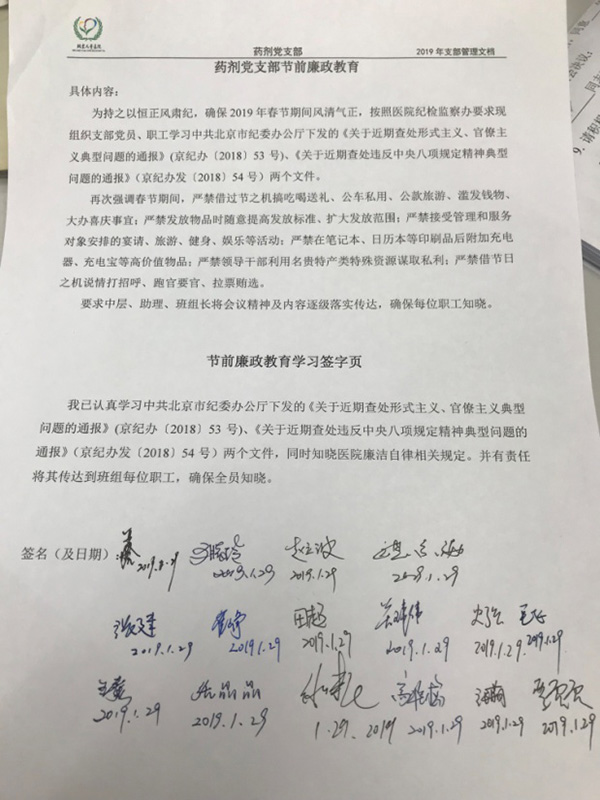 药剂党支部
2019 年支部管理文档
药剂党支部节前廉政教育
具体内容：
为持之以恒正风肃纪，确保 2019 年春节期间风清气正，按照医院纪检监察办要求现
组织支部党员、职工学习中共北京市纪委办公厅下发的《关于近期查处形式主义、官僚主
义典型问题的通报》(京纪办〔2018〕53 号)、《关于近期查处违反中央八项规定精神典型
问题的通报》（京纪办发〔2018〕54 号）两个文件。
再次强调春节期间，严禁借过节之机搞吃喝送礼、公车私用、公款旅游、滥发钱物、
大办喜庆事宜；严禁发放物品时随意提高发放标准、扩大发放范围；严禁接受管理和服务
对象安排的宴请、旅游、健身、娱乐等活动；严禁在笔记本、日历本等印刷品后附加充电
器、充电宝等高价值物品；严禁领导干部利用名贵特产类特殊资源谋取私利；严禁借节日
之机说情打招呼、跑官要官、拉票贿选。
要求中层、助理、班组长将会议精神及内容逐级落实传达，确保每位职工知晓。
节前廉政教育学习签字页
我已认真学习中共北京市纪委办公厅下发的《关于近期查处形式主义、官僚主义典型
问题的通报》(京纪办〔2018〕53 号)、《关于近期查处违反中央八项规定精神典型问题的
通报》（京纪办发〔2018〕54 号）两个文件，同时知晓医院廉洁自律相关规定。并有责任
将其传达到班组每位职工，确保全员知晓。
签名（及日期）：
2019.1.29 2019.1.29 2019.1.29
田超
2019.1.29 2019.1.29 2019.1.29 2019.1.29 2019.1.29 2019.1.29
2019.1.29 2019.1.29 1.29. 2019 2019.1.29 2019.1.29 2019.1.29